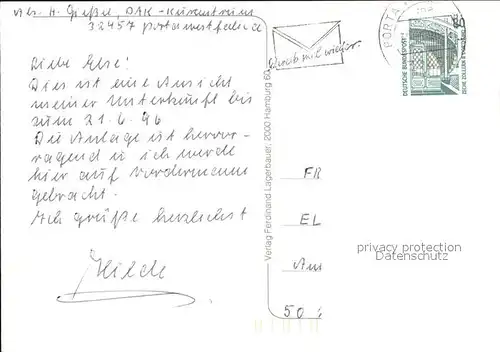 Abs. H. Greßel, DAK-Kurzentrum
32457 Portawestfalica
Liebe Else!
Dies ist eine Ansicht
meiner Unterkunft bis
zum 21.6.96
Die Anlage ist hervor-
ragend u. ich werde
hier auf Vordermann
gebracht.
Ich grüße herzlichst
Hilde
Schreib mal wieder.
PORTA
80
DEUTSCHE BUNDESPOST
ZECHE ZOLLERN II
Verlag Ferdinand Lagerbauer, 2000 Hamburg 60
FR
EL
Am
50
privacy protection
Datenschutz